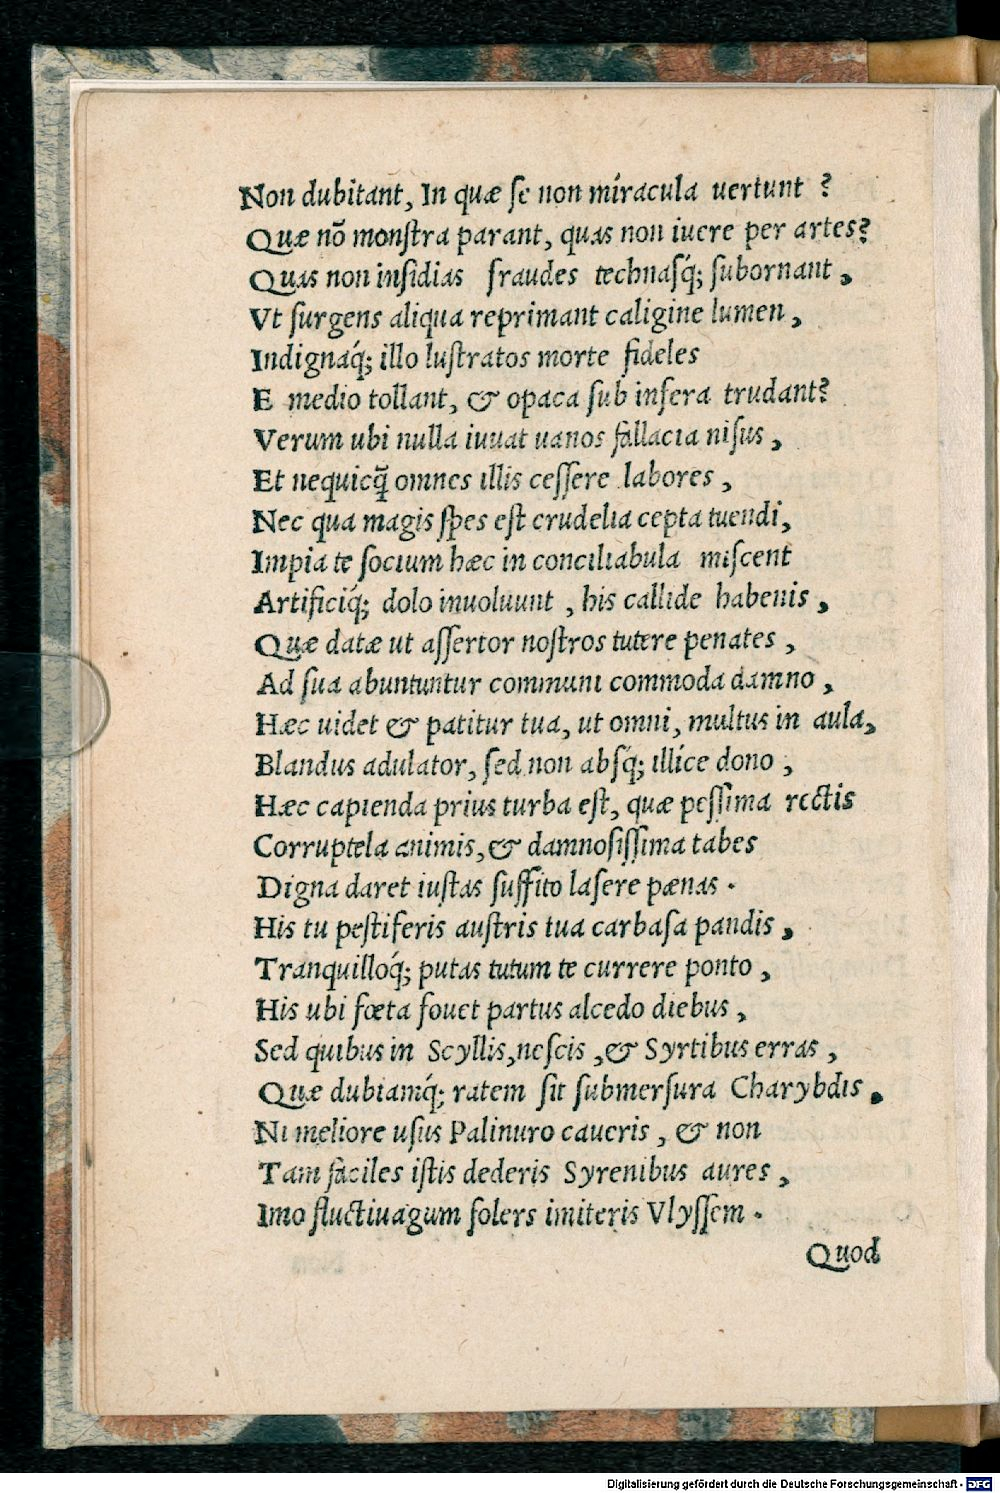 Non dubitant, In quæ ſe non miracula uertunt ?
Quæ nõ monſtra parant, quas non iuere per artes?
Quas non inſidias fraudes technaſq́; ſubornant,
Vt ſurgens aliqua reprimant caligine lumen,
Indignaq́; illo luſtratos morte fideles
E medio tollant, & opaca ſub infera trudant?
Verum ubi nulla iuuat uanos fallacia niſus,
Et nequicq̃ omnes illis ceſſere labores,
Nec qua magis ſpes eſt crudelia cepta tuendi,
Impia te ſocium hæc in conciliabula miſcent
Artificiq́; dolo inuoluunt , his callide habenis,
Quæ datæ ut aſſertor noſtros tutere penates ,
Ad ſua abuntuntur communi commoda damno ,
Hæc uidet & patitur tua, ut omni, multus in aula,
Blandus adulator, ſed non abſq́; illice dono ,
Hæc capienda prius turba eſt, quæ peſſima rectis
Corruptela animis, & damnoſiſſima tabes
Digna daret iuſtas ſuffito laſere pænas .
His tu peſtiferis auſtris tua carbaſa pandis ,
Tranquilloq́; putas tutum te currere ponto ,
His ubi fœta fouet partus alcedo diebus ,
Sed quibus in Scyllis, neſcis , & Syrtibus erras ,
Quæ dubiamq́; ratem ſit ſubmerſura Charybdis .
Ni meliore uſus Palinuro caueris , & non
Tam faciles iſtis dederis Syrenibus aures ,
Imo fluctiuagum ſolers imiteris Vlyſſem .
Quod
Digitalisierung gefördert durch die Deutsche Forschungsgemeinschaft - DFG